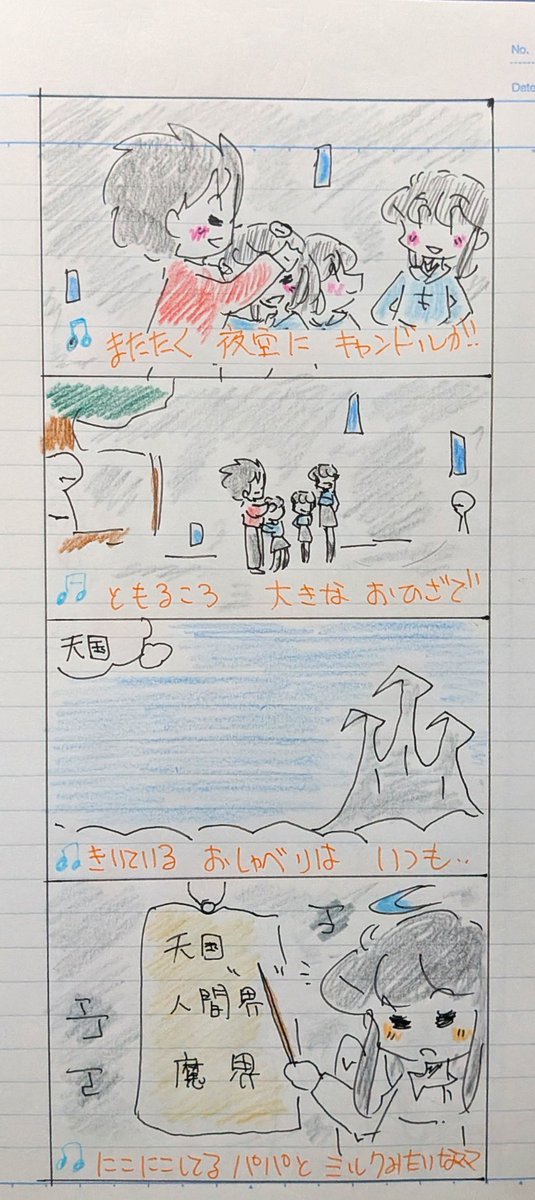 No.
Date
またたく 夜空に キャンドルが!!
ともるころ 大きな おひざで
天国
きいている おしゃべりは いつも..
天国
人間界
魔界
にこにこしてる パパと ミルクみたいなママ